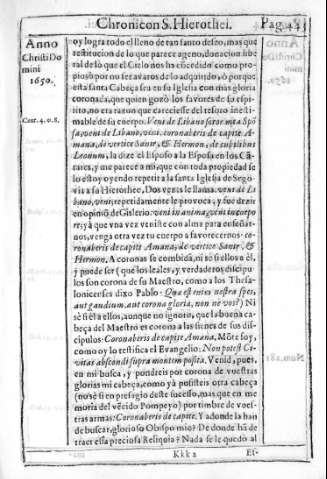 Chronicon S. Hierothei. Pag. 443
Anno
Christi Do
mini
1650.
oy logra todo el lleno de tan santo deseo, mas que
restitucion de lo que parece ageno, donacion libe
ral de lo que el Cielo nos ha concedido como pro
pio, ò por no ser avaros de lo adquirido, ò porque
esta santa Cabeça sea en su Iglesia con mas gloria
coronada, que quien gozò los favores de su espiri
to, no era razon que careciesse del tesoro inesti
Cant. 4. v. 8.
mable de su cuerpo. Veni de Libano soror mea Spo
sa, veni de Libano, veni, coronaberis de capite A-
mana, de vertice Sanir, & Hermon, de cubilibus
Leonum, la dize el Esposo a la Esposa en los Cã-
tares, y me parece a mi, que con toda propiedad se
lo estoy oyendo repetir a la santa Iglesia de Sego
via a su Hierotheo. Dos vezes le llama. veni de Li
bano, veni, repetidamente le provoca, y fue dezir
en opiniõ de Gislerio: veni in anima, veni in corpo
re; yà que vna vez veniste con alma para enseñar-
nos, venga otra vez tu cuerpo a favorecernos: co-
ronaberis de capite Amana, de vertice Sanir, &
Hermon. A coronas se combida, ni sè si ellos ò èl,
y puede ser (que los leales, y verdaderos discipu
los son corona de su Maestro, como a los Thesa-
lonicenses dixo Pablo: Quæ est enim nostra spes,
aut gaudium, aut corona gloriæ, non ne vos?) Ni
sè si èl a ellos, aunque no ignoro, que la buena ca
beça del Maestro es corona a las sienes de sus dis-
cipulos: Coronaberis de capite Amana. Mõte soy,
como oy lo testifica el Evangelio: Non potest Ci-
vitas abscondi supra montem posita. Venid, pues,
en mi busca, y pondreis por corona de vuestras
glorias mi cabeça, como yà pusisteis otra cabeça
(no sè si en presagio deste sucesso, mas que en me
moria del vẽcido Pompeyo) por timbre de vues-
tras armas: Coronaberis de capite. Y adonde la han
de buscar, glorioso Obispo mio? De donde hã de
traer essa preciosa Reliquia? Nada se le quedò al
Kkk 2
Et-